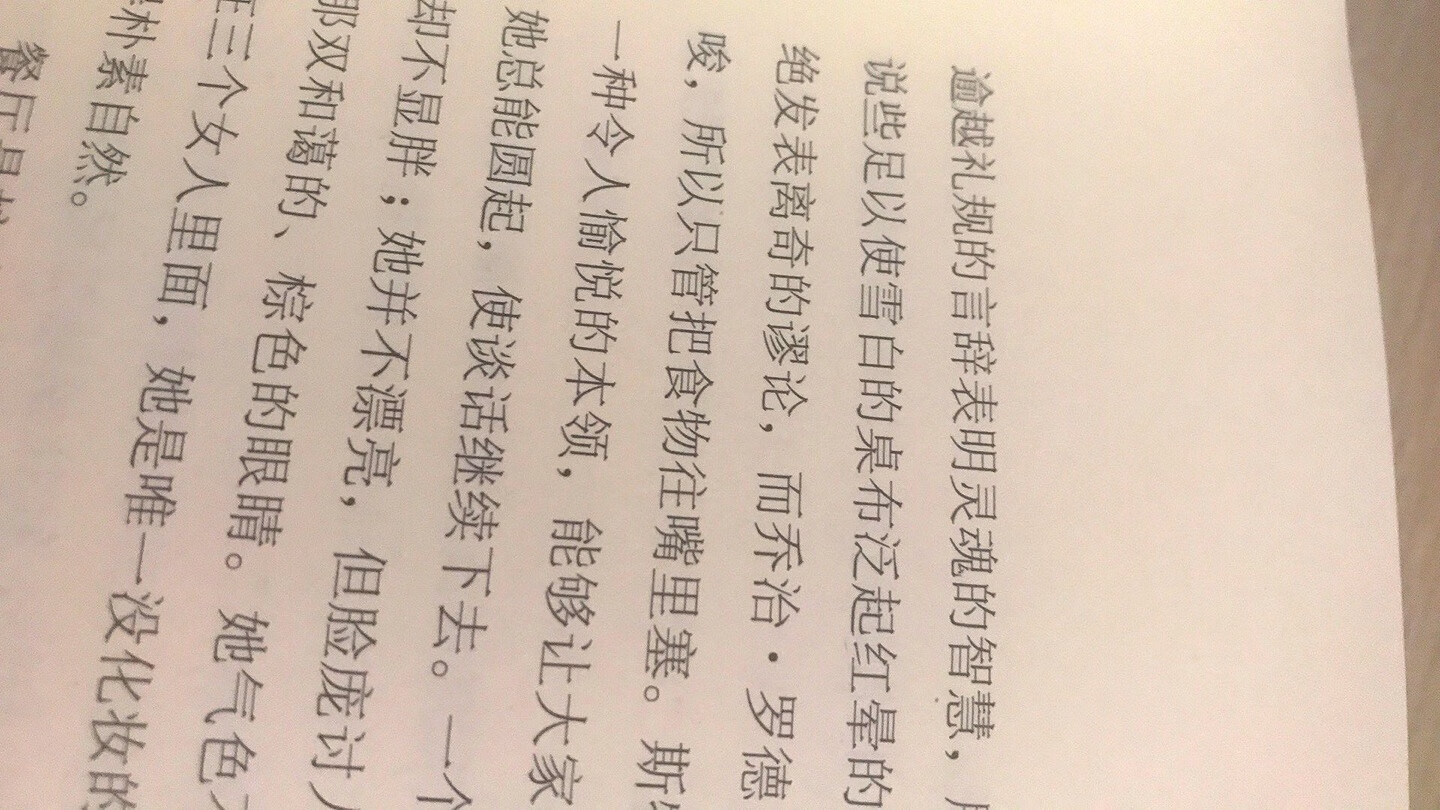 逾越礼规的言辞表明灵魂的智慧，
说些足以使雪白的桌布泛起红晕的
绝发表离奇的谬论，而乔治·罗德
唆，所以只管把食物往嘴里塞。斯
一种令人愉悦的本领，能够让大家
她总能圆起，使谈话继续下去。一个
却不显胖；她并不漂亮，但脸庞讨
那双和蔼的、棕色的眼睛。她气色
三个女人里面，她是唯一没化妆的
朴素自然。
餐厅是